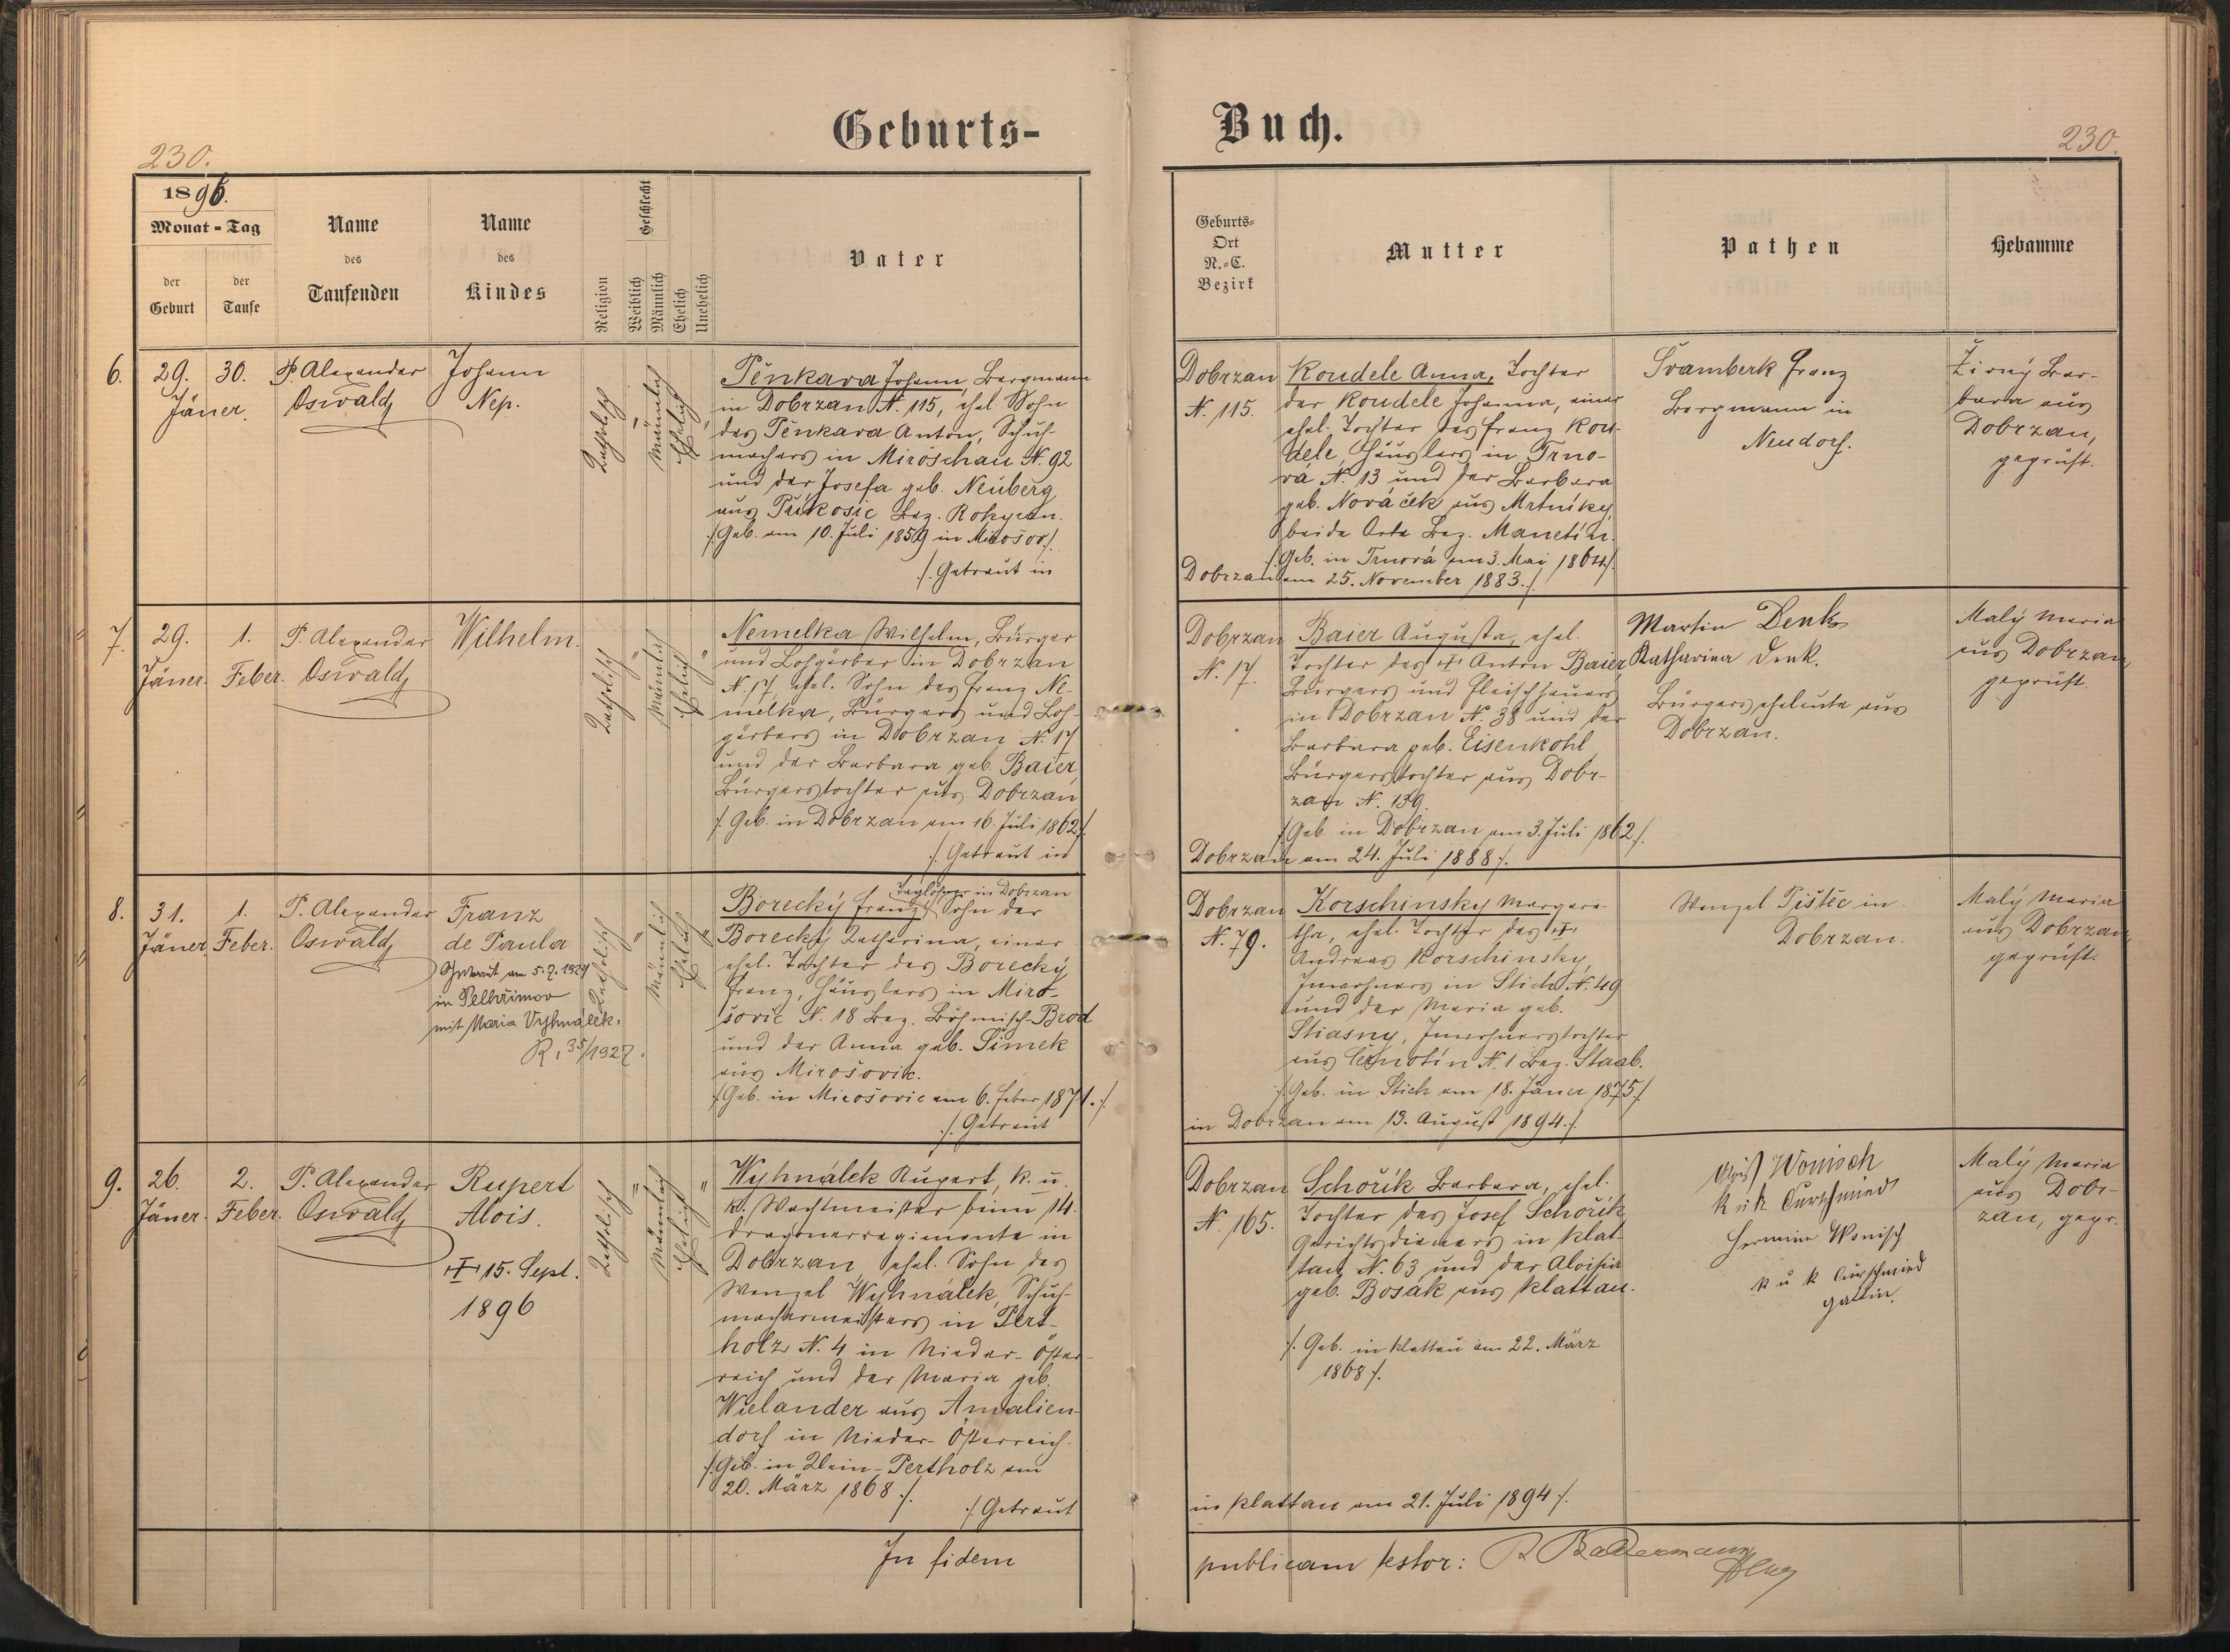 Geburts-
Buch.
230.
230.
1896.
Monat - Tag
der
Geburt
der
Taufe
Name
des
Taufenden
Name
des
Kindes
Religion
Geschlecht
Weiblich
Männlich
Ehelich
Unehelich
Vater
Geburts-
Ort
N.-C.
Bezirk
Mutter
Pathen
Hebamme
6.
29.
Jäner.
30.
P. Alexander
Oswald
Johann
Nep.
Katholisch
"
Männlich
Ehelich
"
Pěnkava Johann, Bergmann
in Dobrzan N. 115, ehel. Sohn
des Pěnkava Anton, Schuh-
machers in Miröschau N. 92
und der Josefa geb. Neuberg
aus Příkosic Bez. Rokycan.
/: Geb. am 10. Juli 1859 in Mirošov :/
/: Getraut in
Dobrzan
N. 115.
Koudele Anna, Tochter
der Koudele Johanna, einer
ehel. Tochter des Franz Kou-
dele, Häuslers in Trno-
vá N. 13 und der Barbara
geb. Nováček aus Mrtníky,
beide Orte Bez. Manetín.
/: Geb. in Trnová am 3. Mai 1864 :/
Dobrzan am 25. November 1883. :/
Švamberk Franz
Bergmann in
Neudorf.
Žirný Bar-
bara aus
Dobrzan,
geprüft.
7.
29.
Jäner.
1.
Feber.
P. Alexander
Oswald
Wilhelm.
Katholisch
"
Männlich
Ehelich
"
Nemelka Wilhelm, Bürger
und Lohgärber in Dobrzan
N. 17, ehel. Sohn des Franz Ne-
melka, Bürgers und Loh-
gärbers in Dobrzan N. 17
und der Barbara geb. Baier,
Bürgerstochter aus Dobrzan
/: Geb. in Dobrzan am 16. Juli 1862 :/
/: Getraut in
Dobrzan
N. 17.
Baier Augusta, ehel.
Tochter des † Anton Baier,
Bürgers und Fleischhauers
in Dobrzan N. 38 und der
Barbara geb. Eisenkohl
Bürgerstochter aus Dobr-
zan N. 139.
/: Geb. in Dobrzan am 3. Juli 1862 :/
Dobrzan am 24. Juli 1888 :/
Martin Denk
Katharina Denk.
Bürgerseheleute aus
Dobrzan.
Malý Maria
aus Dobrzan,
geprüft.
8.
31.
Jäner.
1.
Feber.
P. Alexander
Oswald
Franz
de Paula
Getraut am 5.7.1924
in Pelhřimov
mit Maria Vyhnálek.
R. 35/1927.
Katholisch
"
Männlich
Ehelich
"
Taglöhner in Dobrzan
Borecký Franz, Sohn der
Borecký Katharina, einer
ehel. Tochter des Borecký
Franz, Häuslers in Miro-
šovic N. 18 Bez. Böhmisch-Brod
und der Anna geb. Šimek
aus Mirošovic.
/: Geb. in Mirošovic am 6. Feber 1871. :/
/: Getraut
Dobrzan
N. 79.
Korschinsky Margare-
tha, ehel. Tochter des †
Andreas Korschinsky,
Inwohners in Stich N. 49
und der Maria geb.
Stiasny, Inwohnerstochter
aus Černotín N. 1 Bez. Staab.
/: Geb. in Stich am 18. Jäner 1875 :/
in Dobrzan am 13. August 1894 :/
Wenzel Pištěc in
Dobrzan.
Malý Maria
aus Dobrzan,
geprüft.
9.
26.
Jäner.
2.
Feber.
P. Alexander
Oswald
Rupert
Alois.
† 15. Sept.
1896
Katholisch
"
Männlich
Ehelich
"
Wyhnálek Rupert, k. u.
k. Wachtmeister beim 14.
Dragonerregimente in
Dobrzan, ehel. Sohn des
Wenzel Wyhnálek, Schuh-
machermeisters in Pert-
holz N. 4 in Nieder-Öster-
reich und der Maria geb.
Wielander aus Amalien-
dorf in Nieder-Österreich.
/: Geb. in Klein-Pertholz am
20. März 1868 :/
/: Getraut
Dobrzan
N. 165.
Schořík Barbara, ehel.
Tochter des Josef Schořík
Gerichtsdieners in Klat-
tau N. 63 und der Aloisia
geb. Bosák aus Klattau.
/: Geb. in Klattau am 22. März
1868 :/
in Klattau am 21. Juli 1894 :/
Alois Wonisch
k u k Curschmied
Hermine Wonisch
k u k Curschmied
gattin.
Malý Maria
aus Dobr-
zan, gepr.
In fidem
publicam testor: